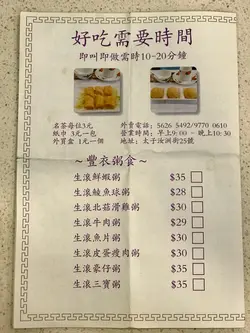 好吃需要時間
即叫即做需時10-20分鐘
名茶每位3元
紙巾 3元一包
外買盒 1元一個
外賣電話: 5626 5492/9770 0610
營業時間: 早上9:00 ~ 晚上10:30
地址: 太子汝洲街25號
~ 豐衣粥食 ~
生滾鮮蝦粥 $35
生滾鯪魚球粥 $28
生滾北菇滑雞粥 $30
生滾牛肉粥 $29
生滾魚片粥 $30
生滾皮蛋瘦肉粥 $30
生滾豪仔粥 $35
生滾三寶粥 $35